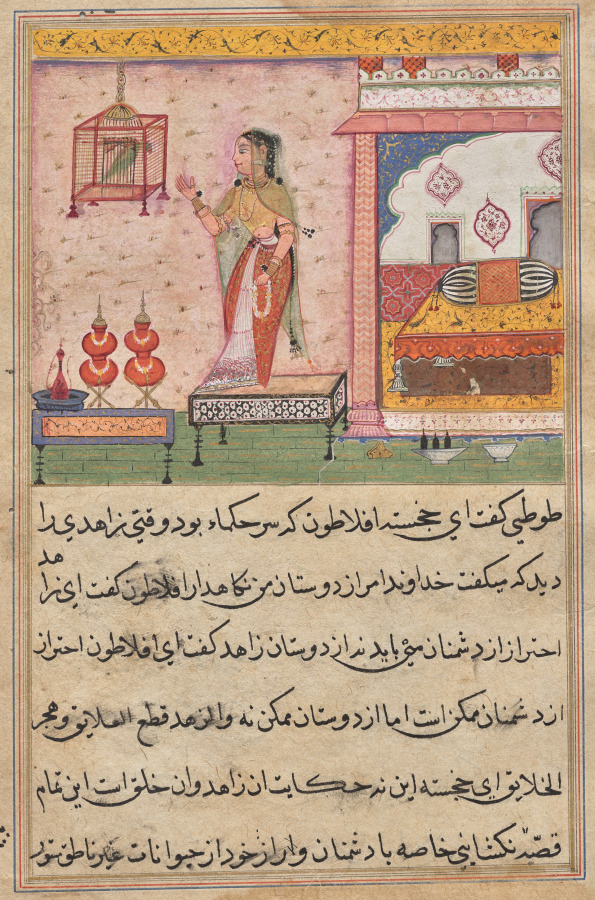 طوطي کفت اي خجسته افلاطون که سر حکماء بود وقتي زاهدي را
ديد که ميکفت خداوندا مرا از دوستان من نکاهدار افلاطون کفت اي زاهد
احتراز از دشمنان مي بايد نه از دوستان زاهد کفت اي افلاطون احتراز
از دشمنان ممکن است اما از دوستان ممکن نه والزهد قطع العلايق و هجر
الخلايق اي خجسته اين نه حکايت ان زاهد وان خلق است اين تمام
نکشايي خاصه با دشمنان و از خود از حيوانات غير ناطق